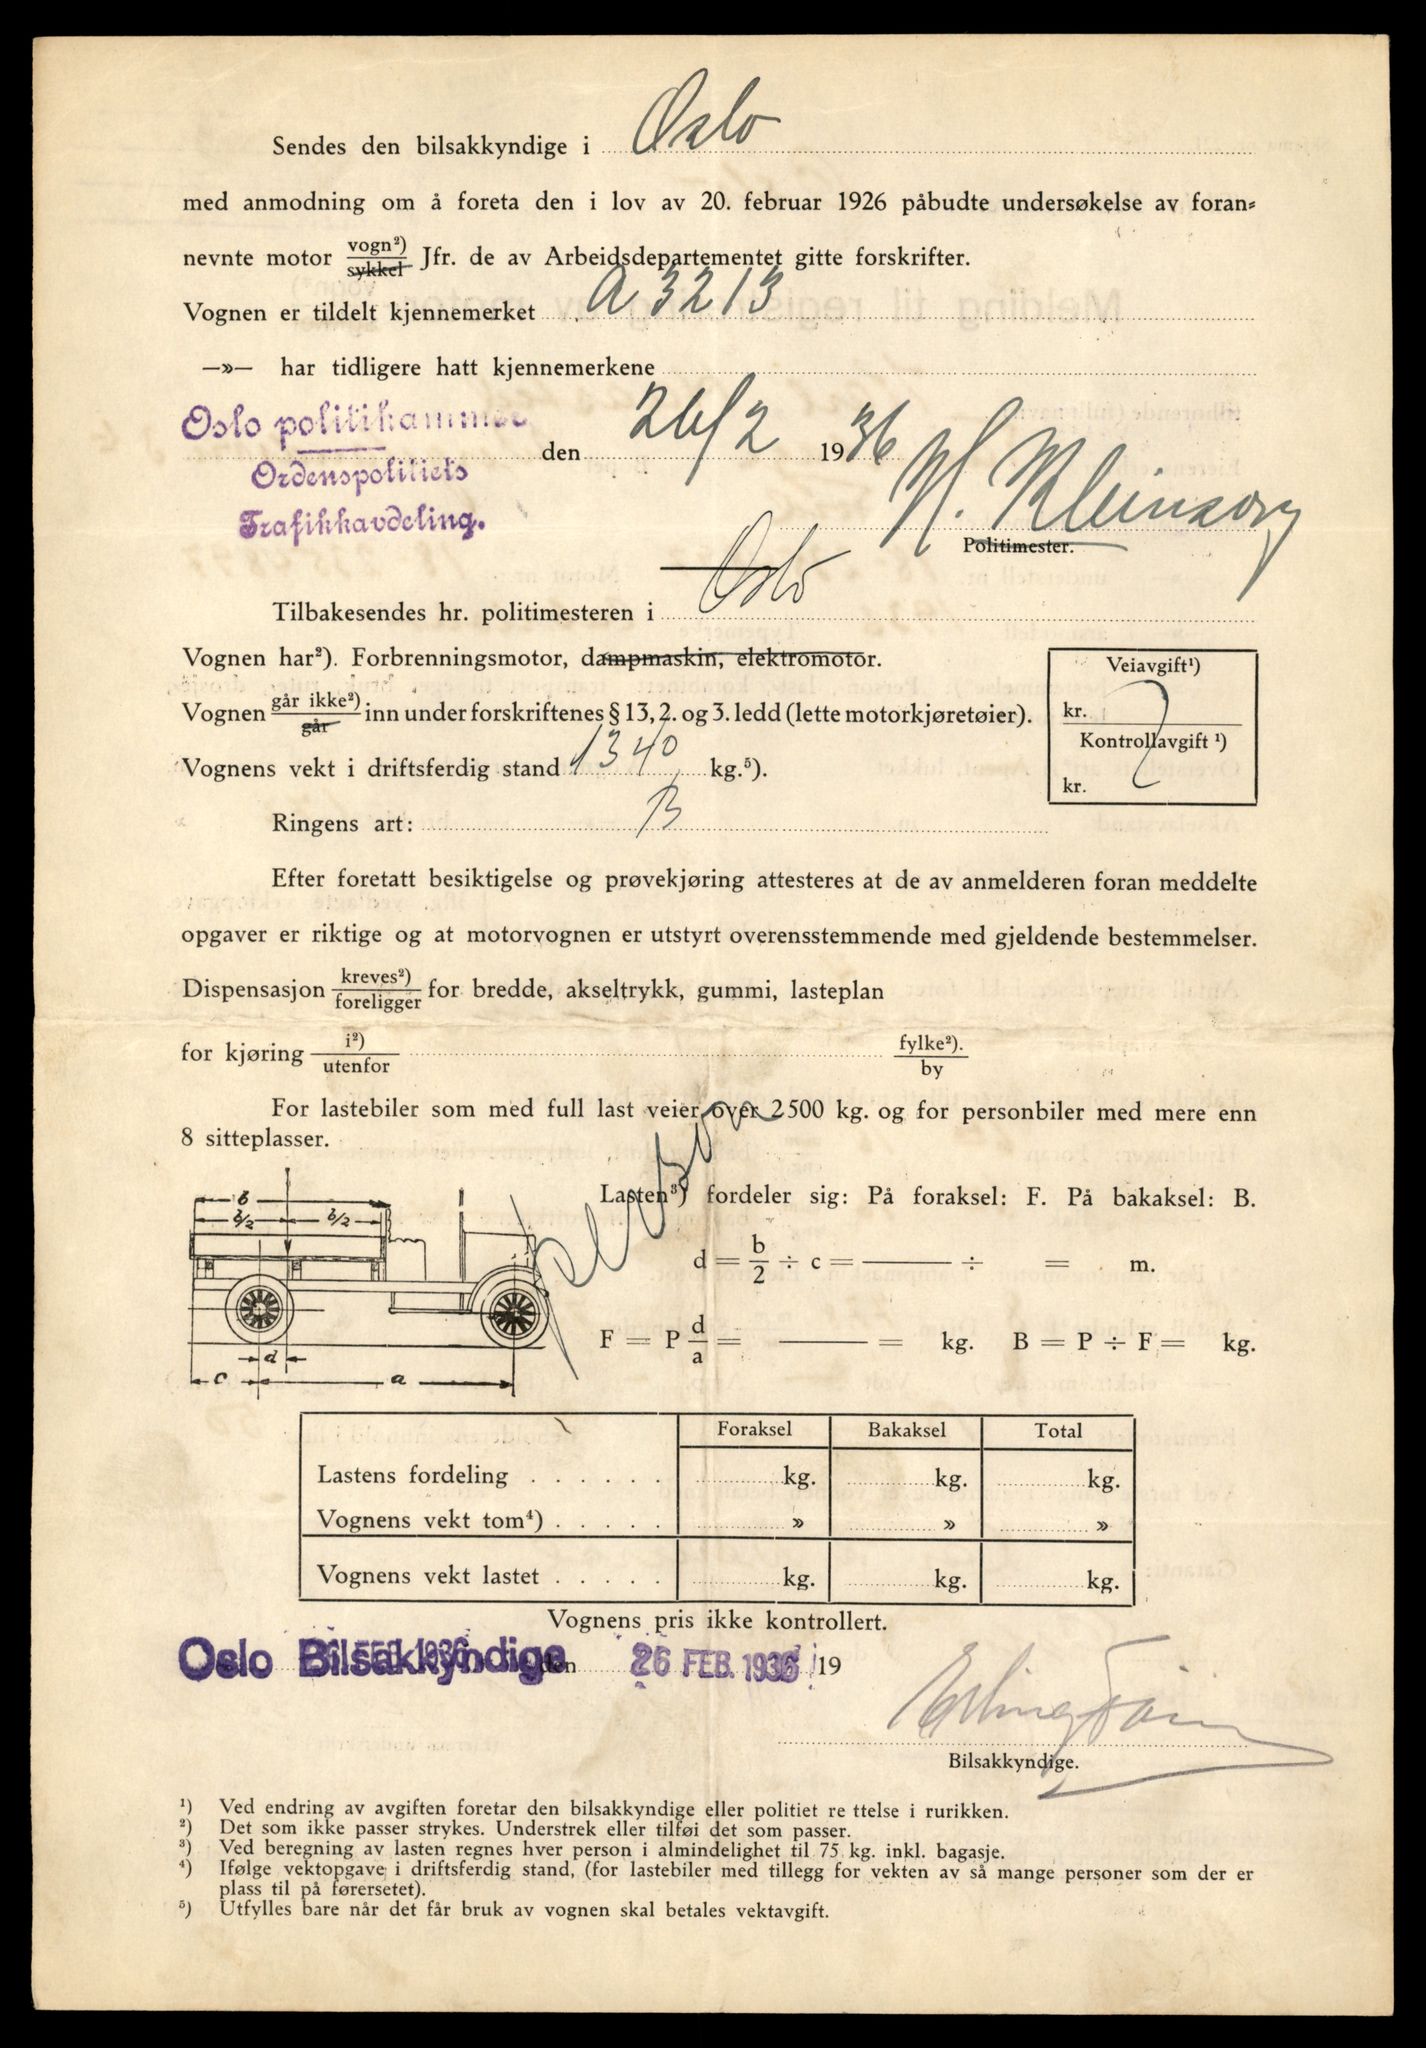 Sendes den bilsakkyndige i Oslo
med anmodning om å foreta den i lov av 20. februar 1926 påbudte undersøkelse av foran-
nevnte motor vogn²) sykkel Jfr. de av Arbeidsdepartementet gitte forskrifter.
Vognen er tildelt kjennemerket A 3213
—»— har tidligere hatt kjennemerkene
Oslo politikammer
den 26/2 1936
Ordenspolitiets
Trafikkavdeling.
Politimester.
Tilbakesendes hr. politimesteren i Oslo
Vognen har²). Forbrenningsmotor, dampmaskin, elektromotor.
Veiavgift¹)
Vognen går ikke²) går inn under forskriftenes § 13, 2. og 3. ledd (lette motorkjøretøier).
kr.
Kontrollavgift ¹)
Vognens vekt i driftsferdig stand 1340 kg.⁵).
kr.
Ringens art: B
Efter foretatt besiktigelse og prøvekjøring attesteres at de av anmelderen foran meddelte
opgaver er riktige og at motorvognen er utstyrt overensstemmende med gjeldende bestemmelser.
Dispensasjon kreves²) foreligger for bredde, akseltrykk, gummi, lasteplan
for kjøring i²) utenfor fylke²). by
For lastebiler som med full last veier over 2500 kg. og for personbiler med mere enn
8 sitteplasser.
b
b/2 b/2
Lasten³) fordeler sig: På foraksel: F. På bakaksel: B.
d = b/2 ÷ c = ——— ÷ = m.
F = P d/a = ——— = kg. B = P ÷ F = kg.
d
c a
Foraksel Bakaksel Total
Lastens fordeling . . . . . . kg. kg. kg.
Vognens vekt tom⁴) . . . . . » » »
Vognens vekt lastet . . . . . kg. kg. kg.
Vognens pris ikke kontrollert.
Oslo Bilsakkyndige den 26 FEB. 1936 19
Bilsakkyndige.
¹) Ved endring av avgiften foretar den bilsakkyndige eller politiet re ttelse i rurikken.
²) Det som ikke passer strykes. Understrek eller tilføi det som passer.
³) Ved beregning av lasten regnes hver person i almindelighet til 75 kg. inkl. bagasje.
⁴) Ifølge vektopgave i driftsferdig stand, (for lastebiler med tillegg for vekten av så mange personer som der er
plass til på førersetet).
⁵) Utfylles bare når det får bruk av vognen skal betales vektavgift.